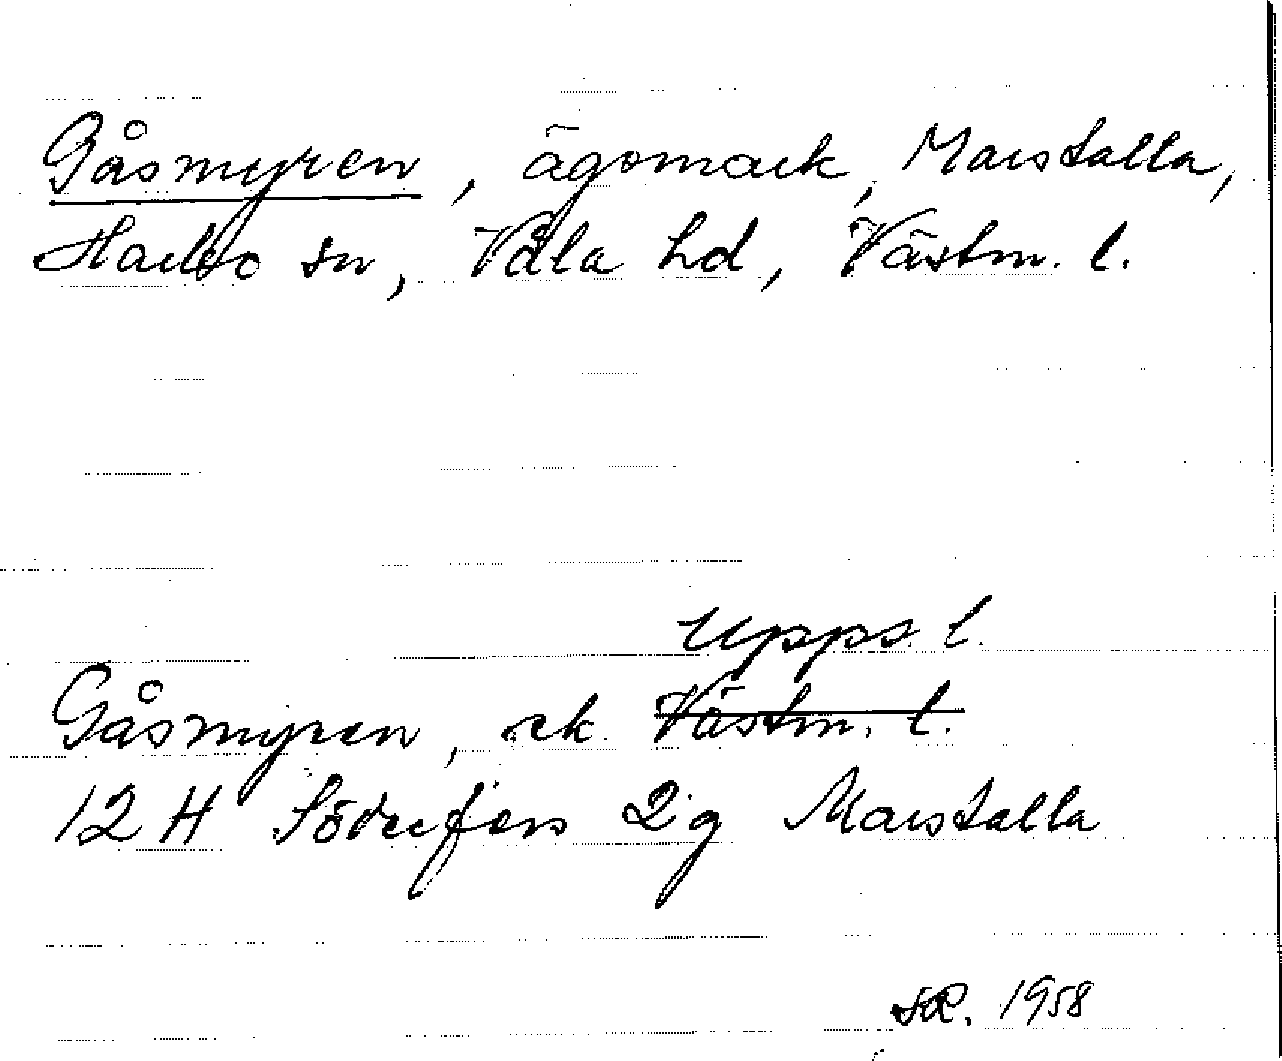 Gåsmyren, ägomark, Marstalla,
Harbo sn, Våla hd, Västm. l.
Upps. l.
Gåsmyren, ek. Västm. l.
12 H Söderfors 2 g Marstalla
1958